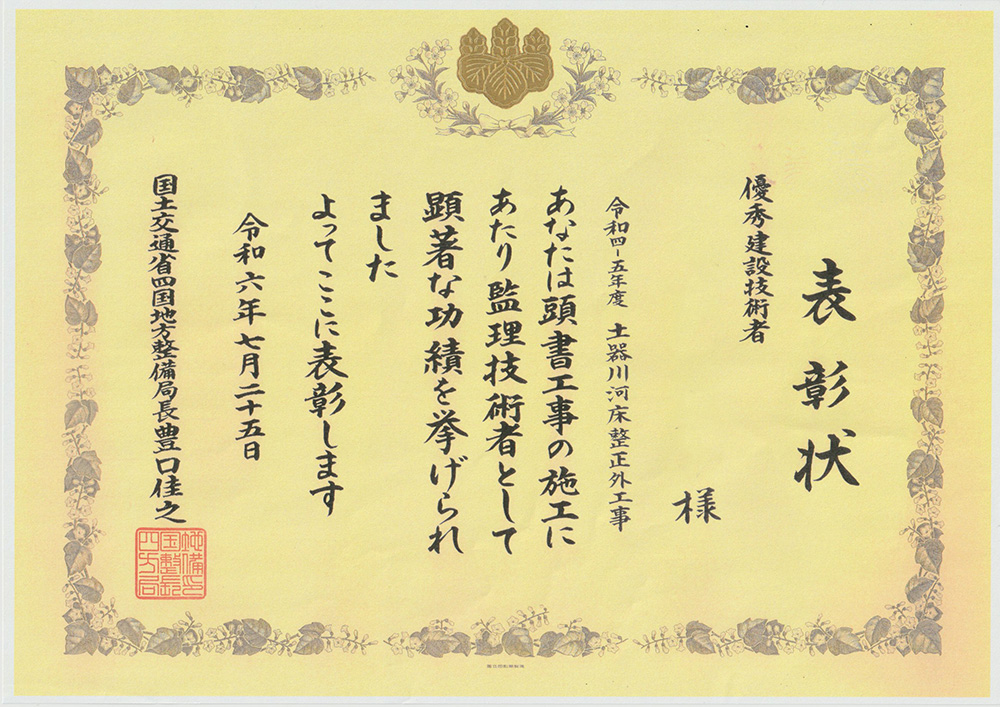 表彰状
優秀建設技術者
様
令和四-五年度 土器川河床整正外工事
あなたは頭書工事の施工に
あたり監理技術者として
顕著な功績を挙げられ
ました
よってここに表彰します
令和六年七月二十五日
国土交通省四国地方整備局長豊口佳之